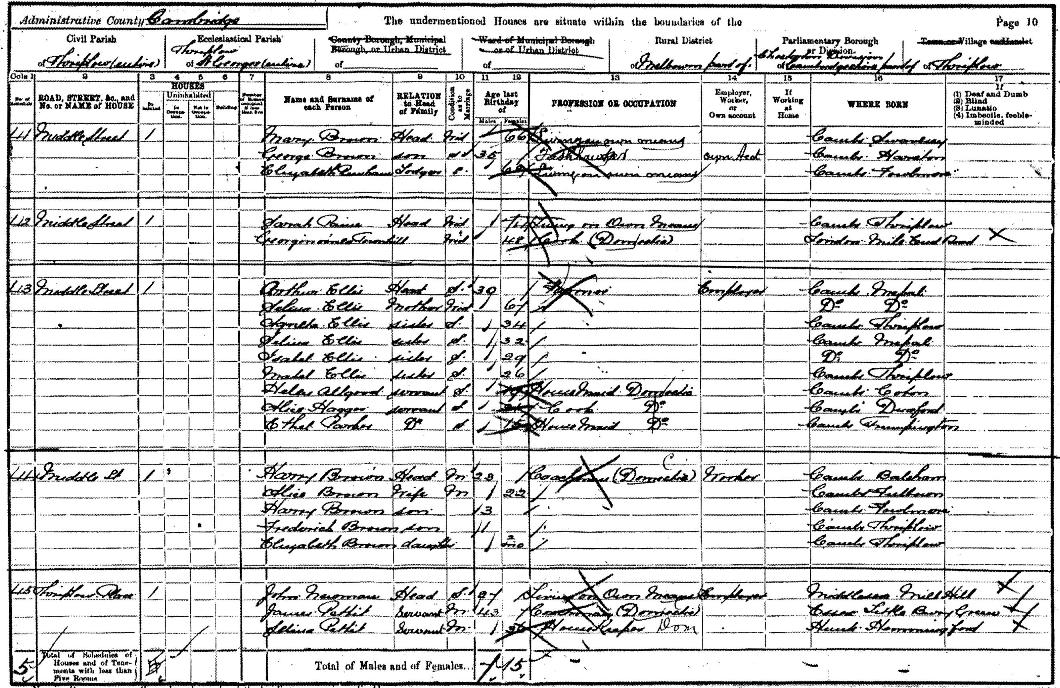 Administrative County Cambridge The undermentioned Houses are situate within the boundaries of the Page 10
Civil Parish Ecclesiastical Parish County Borough, Municipal Borough, or Urban District Ward of Municipal Borough or of Urban District Rural District Parliamentary Borough or Division Town or Village or Hamlet
of Thriplow (entire) of Thriplow St Georges (entire) of of of Melbourn part of of Chesterton Division Cambridgeshire part of of Thriplow
Cols 1 2 3 4 5 6 7 8 9 10 11 12 13 14 15 16 17
No. of Schedule ROAD, STREET, &c., and No. or NAME of HOUSE HOUSES Inhabited Uninhabited In Occupation Not in Occupation Building Name and Surname of each Person RELATION to Head of Family Condition as to Marriage Age last Birthday of Males Females PROFESSION OR OCCUPATION Employer, Worker, or Own account If Working at Home WHERE BORN If (1) Deaf and Dumb (2) Blind (3) Lunatic (4) Imbecile, feeble-minded
41 Middle Street 1 Mary Brown Head Wid 66 Living on own means Cambs Swavesey
George Brown son S 35 own Acct Cambs Harston
Elizabeth Lodger S Living on own means Cambs Fowlmere
42 Middle Street 1 Sarah Head Wid Living on Own Means Cambs Thriplow
Wid 48 Cook (Domestic) London Mile End Road
43 Middle Street 1 Arthur Ellis Head S. 30 Farmer Employer Cambs Mepal
Selina Ellis Mother Wid 67 Do Do
Ellis sister S. 34 Cambs Thriplow
Selina Ellis sister S. 32 Cambs Mepal
Isabel Ellis sister S. 29 Do Do
Mabel Ellis sister S. 26 Cambs Thriplow
Helen Allgood servant S. 19 House Maid Domestic Cambs Coton
Alice Hagger servant S. Cook Do Cambs Duxford
Ethel Parker Do S House Maid Do Cambs Trumpington
44 Middle St 1 Harry Brown Head M 23 Coachman (Domestic) Worker Cambs Balsham
Alice Brown Wife M 22 Cambs Fulbourn
Harry Brown son 3 Cambs Fowlmere
Frederick Brown son 1 Cambs Thriplow
Elizabeth Brown daughter 2 mo Cambs Thriplow
45 Thriplow Place 1 John Newman Head S Living on Own Means Employer Middlesex Mill Hill
James Pettit Servant M 43 Coachman (Domestic) Essex Little Bury Green
Selina Pettit Servant M 36 House Keeper Dom Hunts Hemmingford
5 Total of Schedules of Houses and of Tenements with less than Five Rooms 5 Total of Males and of Females... 7 15